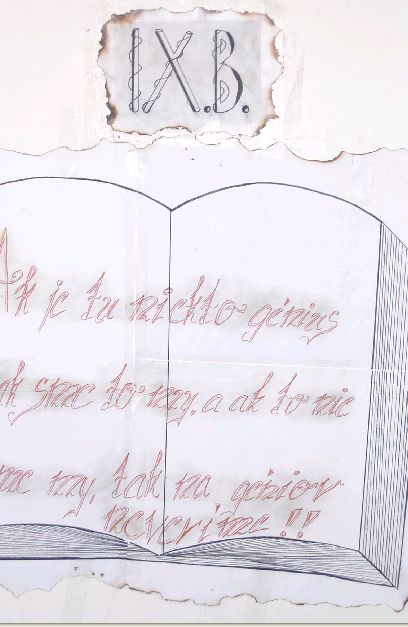 IX.B.
Ak je tu niekto génius
ak sme to my, a ak to nie
me my, tak na geniov
neveríme !!